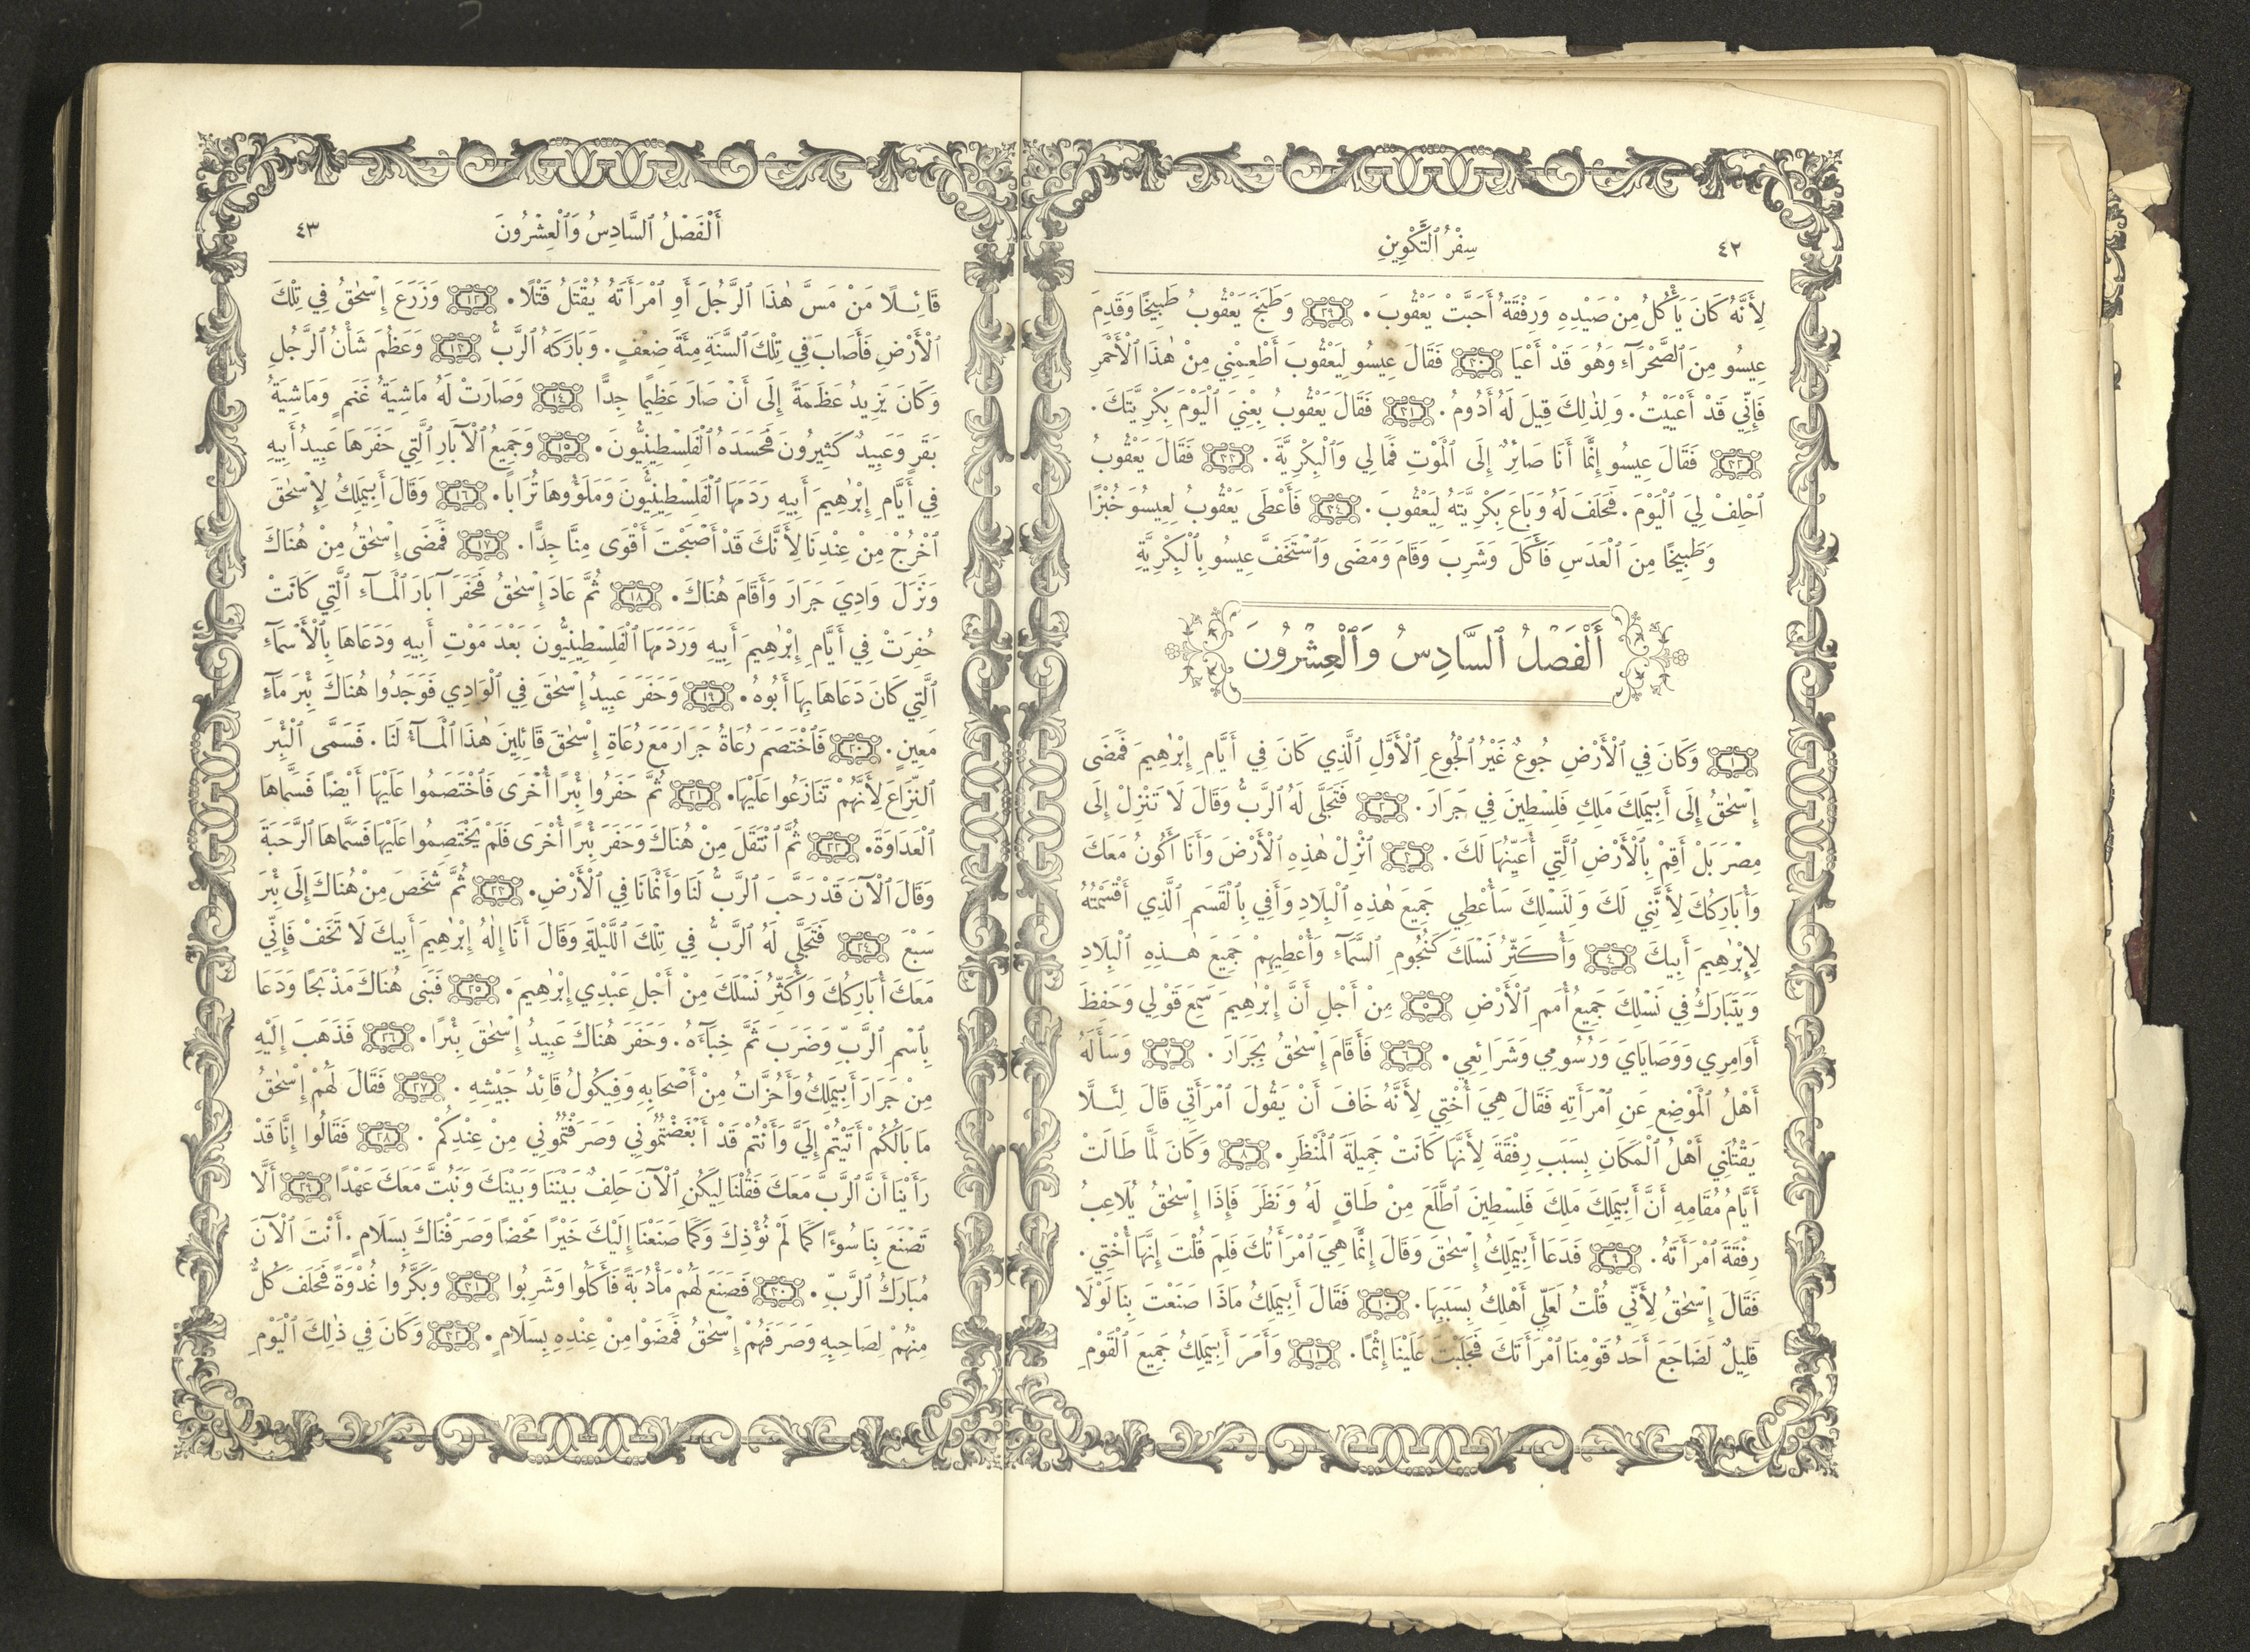 ٤٢
سِفْرُ ٱلتَّكْوِينِ
لِأَنَّهُ كَانَ يَأْكُلُ مِنْ صَيْدِهِ وَرِفْقَةُ أَحَبَّتْ يَعْقُوبَ . ٢٩ وَطَبَخَ يَعْقُوبُ طَبِيخًا وَقَدِمَ
عِيسُو مِنَ ٱلصَّحْرَآءِ وَهُوَ قَدْ أَعْيَا ٣٠ فَقَالَ عِيسُو لِيَعْقُوبَ أَطْعِمْنِي مِنْ هٰذَا ٱلْأَحْمَرِ
فَإِنِّي قَدْ أَعْيَيْتُ . وَلِذٰلِكَ قِيلَ لَهُ أَدُومُ . ٣١ فَقَالَ يَعْقُوبُ بِعْنِيَ ٱلْيَوْمَ بِكْرِيَّتَكَ .
٣٢ فَقَالَ عِيسُو إِنَّمَا أَنَا صَائِرٌ إِلَى ٱلْمَوْتِ فَمَا لِي وَٱلْبِكْرِيَّةَ . ٣٣ فَقَالَ يَعْقُوبُ
ٱحْلِفْ لِيَ ٱلْيَوْمَ . فَحَلَفَ لَهُ وَبَاعَ بِكْرِيَّتَهُ لِيَعْقُوبَ . ٣٤ فَأَعْطَى يَعْقُوبُ لِعِيسُوَ خُبْزًا
وَطَبِيخًا مِنَ ٱلْعَدَسِ فَأَكَلَ وَشَرِبَ وَقَامَ وَمَضَى وَٱسْتَخَفَّ عِيسُو بِٱلْبِكْرِيَّةِ
أَلْفَصْلُ ٱلسَّادِسُ وَٱلْعِشْرُونَ
١ وَكَانَ فِي ٱلْأَرْضِ جُوعٌ غَيْرُ ٱلْجُوعِ ٱلْأَوَّلِ ٱلَّذِي كَانَ فِي أَيَّامِ إِبْرٰهِيمَ فَمَضَى
إِسْحٰقُ إِلَى أَبِيمَلِكَ مَلِكِ فَلِسْطِينَ فِي جَرَارَ . ٢ فَتَجَلَّى لَهُ ٱلرَّبُّ وَقَالَ لَا تَنْزِلْ إِلَى
مِصْرَ بَلْ أَقِمْ بِٱلْأَرْضِ ٱلَّتِي أُعَيِّنُهَا لَكَ . ٣ اُنْزِلْ هٰذِهِ ٱلْأَرْضَ وَأَنَا أَكُونُ مَعَكَ
وَأُبَارِكُكَ لِأَنِّي لَكَ وَلِنَسْلِكَ سَأُعْطِي جَمِيعَ هٰذِهِ ٱلْبِلَادِ وَأَفِي بِٱلْقَسَمِ ٱلَّذِي أَقْسَمْتُهُ
لِإِبْرٰهِيمَ أَبِيكَ ٤ وَأُكَثِّرُ نَسْلَكَ كَنُجُومِ ٱلسَّمَآءِ وَأُعْطِيهِمْ جَمِيعَ هٰذِهِ ٱلْبِلَادِ
وَيَتَبَارَكُ فِي نَسْلِكَ جَمِيعُ أُمَمِ ٱلْأَرْضِ ٥ مِنْ أَجْلِ أَنَّ إِبْرٰهِيمَ سَمِعَ قَوْلِي وَحَفِظَ
أَوَامِرِي وَوَصَايَايَ وَرُسُومِي وَشَرَائِعِي . ٦ فَأَقَامَ إِسْحٰقُ بِجَرَارَ . ٧ وَسَأَلَهُ
أَهْلُ ٱلْمَوْضِعِ عَنِ ٱمْرَأَتِهِ فَقَالَ هِيَ أُخْتِي لِأَنَّهُ خَافَ أَنْ يَقُولَ ٱمْرَأَتِي قَالَ لِئَلَّا
يَقْتُلَنِي أَهْلُ ٱلْمَكَانِ بِسَبَبِ رِفْقَةَ لِأَنَّهَا كَانَتْ جَمِيلَةَ ٱلْمَنْظَرِ . ٨ وَكَانَ لَمَّا طَالَتْ
أَيَّامُ مُقَامِهِ أَنَّ أَبِيمَلِكَ مَلِكَ فَلِسْطِينَ ٱطَّلَعَ مِنْ طَاقٍ لَهُ وَنَظَرَ فَإِذَا إِسْحٰقُ يُلَاعِبُ
رِفْقَةَ ٱمْرَأَتَهُ . ٩ فَدَعَا أَبِيمَلِكُ إِسْحٰقَ وَقَالَ إِنَّمَا هِيَ ٱمْرَأَتُكَ فَلِمَ قُلْتَ إِنَّهَا أُخْتِي .
فَقَالَ إِسْحٰقُ لِأَنِّي قُلْتُ لَعَلِّي أَهْلِكُ بِسَبَبِهَا . ١٠ فَقَالَ أَبِيمَلِكُ مَاذَا صَنَعْتَ بِنَا لَوْلَا
قَلِيلٌ لَضَاجَعَ أَحَدُ قَوْمِنَا ٱمْرَأَتَكَ فَجَلَبْتَ عَلَيْنَا إِثْمًا . ١١ وَأَمَرَ أَبِيمَلِكُ جَمِيعَ ٱلْقَوْمِ
أَلْفَصْلُ ٱلسَّادِسُ وَٱلْعِشْرُونَ
٤٣
قَائِلًا مَنْ مَسَّ هٰذَا ٱلرَّجُلَ أَوِ ٱمْرَأَتَهُ يُقْتَلُ قَتْلًا . ١٢ وَزَرَعَ إِسْحٰقُ فِي تِلْكَ
ٱلْأَرْضِ فَأَصَابَ فِي تِلْكَ ٱلسَّنَةِ مِئَةَ ضِعْفٍ . وَبَارَكَهُ ٱلرَّبُّ ١٣ وَعَظُمَ شَأْنُ ٱلرَّجُلِ
وَكَانَ يَزِيدُ عَظَمَةً إِلَى أَنْ صَارَ عَظِيمًا جِدًّا ١٤ وَصَارَتْ لَهُ مَاشِيَةُ غَنَمٍ وَمَاشِيَةُ
بَقَرٍ وَعَبِيدٌ كَثِيرُونَ فَحَسَدَهُ ٱلْفَلِسْطِينِيُّونَ . ١٥ وَجَمِيعُ ٱلْآبَارِ ٱلَّتِي حَفَرَهَا عَبِيدُ أَبِيهِ
فِي أَيَّامِ إِبْرٰهِيمَ أَبِيهِ رَدَمَهَا ٱلْفَلِسْطِينِيُّونَ وَمَلَؤُوهَا تُرَابًا . ١٦ وَقَالَ أَبِيمَلِكُ لِإِسْحٰقَ
ٱخْرُجْ مِنْ عِنْدِنَا لِأَنَّكَ قَدْ أَصْبَحْتَ أَقْوَى مِنَّا جِدًّا . ١٧ فَمَضَى إِسْحٰقُ مِنْ هُنَاكَ
وَنَزَلَ وَادِيَ جَرَارَ وَأَقَامَ هُنَاكَ . ١٨ ثُمَّ عَادَ إِسْحٰقُ فَحَفَرَ آبَارَ ٱلْمَآءِ ٱلَّتِي كَانَتْ
حُفِرَتْ فِي أَيَّامِ إِبْرٰهِيمَ أَبِيهِ وَرَدَمَهَا ٱلْفَلِسْطِينِيُّونَ بَعْدَ مَوْتِ أَبِيهِ وَدَعَاهَا بِٱلْأَسْمَآءِ
ٱلَّتِي كَانَ دَعَاهَا بِهَا أَبُوهُ . ١٩ وَحَفَرَ عَبِيدُ إِسْحٰقَ فِي ٱلْوَادِي فَوَجَدُوا هُنَاكَ بِئْرَ مَآءٍ
مَعِينٍ . ٢٠ فَٱخْتَصَمَ رُعَاةُ جَرَارَ مَعَ رُعَاةِ إِسْحٰقَ قَائِلِينَ هٰذَا ٱلْمَآءُ لَنَا . فَسَمَّى ٱلْبِئْرَ
ٱلنِّزَاعَ لِأَنَّهُمْ تَنَازَعُوا عَلَيْهَا . ٢١ ثُمَّ حَفَرُوا بِئْرًا أُخْرَى فَٱخْتَصَمُوا عَلَيْهَا أَيْضًا فَسَمَّاهَا
ٱلْعَدَاوَةَ . ٢٢ ثُمَّ ٱنْتَقَلَ مِنْ هُنَاكَ وَحَفَرَ بِئْرًا أُخْرَى فَلَمْ يَخْتَصِمُوا عَلَيْهَا فَسَمَّاهَا ٱلرَّحَبَةَ
وَقَالَ ٱلْآنَ قَدْ رَحَّبَ ٱلرَّبُّ لَنَا وَأَنْمَانَا فِي ٱلْأَرْضِ . ٢٣ ثُمَّ شَخَصَ مِنْ هُنَاكَ إِلَى بِئْرَ
سَبْعَ ٢٤ فَتَجَلَّى لَهُ ٱلرَّبُّ فِي تِلْكَ ٱللَّيْلَةِ وَقَالَ أَنَا إِلٰهُ إِبْرٰهِيمَ أَبِيكَ لَا تَخَفْ فَإِنِّي
مَعَكَ أُبَارِكُكَ وَأُكَثِّرُ نَسْلَكَ مِنْ أَجْلِ عَبْدِي إِبْرٰهِيمَ . ٢٥ فَبَنَى هُنَاكَ مَذْبَحًا وَدَعَا
بِٱسْمِ ٱلرَّبِّ وَضَرَبَ ثَمَّ خِبَآءَهُ . وَحَفَرَ هُنَاكَ عَبِيدُ إِسْحٰقَ بِئْرًا . ٢٦ فَذَهَبَ إِلَيْهِ
مِنْ جَرَارَ أَبِيمَلِكُ وَأَحُزَّاتُ مِنْ أَصْحَابِهِ وَفِيكُولُ قَائِدُ جَيْشِهِ . ٢٧ فَقَالَ لَهُمْ إِسْحٰقُ
مَا بَالُكُمْ أَتَيْتُمْ إِلَيَّ وَأَنْتُمْ قَدْ أَبْغَضْتُمُونِي وَصَرَفْتُمُونِي مِنْ عِنْدِكُمْ . ٢٨ فَقَالُوا إِنَّا قَدْ
رَأَيْنَا أَنَّ ٱلرَّبَّ مَعَكَ فَقُلْنَا لِيَكُنِ ٱلْآنَ حَلِفٌ بَيْنَنَا وَبَيْنَكَ وَنَبُتَّ مَعَكَ عَهْدًا ٢٩ أَلَّا
تَصْنَعَ بِنَا سُوءًا كَمَا لَمْ نُؤْذِكَ وَكَمَا صَنَعْنَا إِلَيْكَ خَيْرًا مَحْضًا وَصَرَفْنَاكَ بِسَلَامٍ . أَنْتَ ٱلْآنَ
مُبَارَكُ ٱلرَّبِّ . ٣٠ فَصَنَعَ لَهُمْ مَأْدُبَةً فَأَكَلُوا وَشَرِبُوا ٣١ وَبَكَّرُوا غُدْوَةً فَحَلَفَ كُلٌّ
مِنْهُمْ لِصَاحِبِهِ وَصَرَفَهُمْ إِسْحٰقُ فَمَضَوْا مِنْ عِنْدِهِ بِسَلَامٍ . ٣٢ وَكَانَ فِي ذٰلِكَ ٱلْيَوْمِ